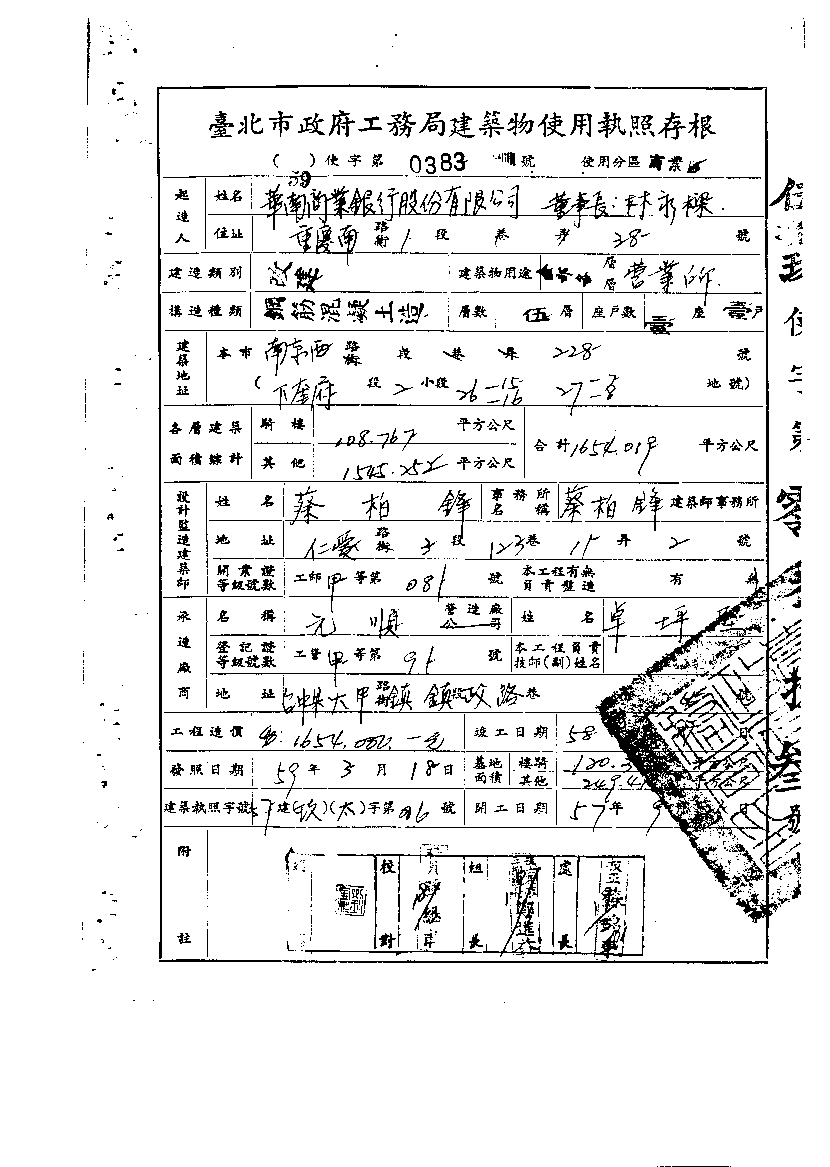 臺北市政府工務局建築物使用執照存根
( 59 )使字第 0383 號 使用分區 商業區
起造人 姓名 華南商業銀行股份有限公司 董事長:林永樑
住址 重慶南 路街 1 段 巷 弄 28 號
建造類別 改建 建築物用途 層層 營業所
構造種類 鋼筋混凝土造 層數 伍層 座戶數 壹座 壹戶
建築地址 本市 南京西 路街 段 巷 弄 228 號
( 下奎府 段 2 小段 26-15 26-16 27-3 地號)
各層建築面積綜計 騎樓 108.767 平方公尺 合計 1654.019 平方公尺
其他 1545.252 平方公尺
設計監造建築師 姓名 蔡柏鋒 事務所名稱 蔡柏鋒 建築師事務所
地址 仁愛 路街 3 段 123 巷 15 弄 2 號
開業證等級號數 工師甲等第 081 號 本工程有無負責監造 有 無
承造廠商 名稱 元順 營造廠公司 姓名 卓坪
登記證等級號數 工營甲等第 91 號 本工程負責技師(副)姓名
地址 台中縣大甲鎮鎮政路 路街 段 巷 號
工程造價 1654,000.-元 竣工日期 58 日
發照日期 59年 3月 18日 基地面積 騎樓 120.3 平方公尺
其他 249.4 平方公尺
建築執照字號 57建(改)(太)字第 016 號 開工日期 57年 9 日
附註
校對 組長 處長
使字第零
叁號